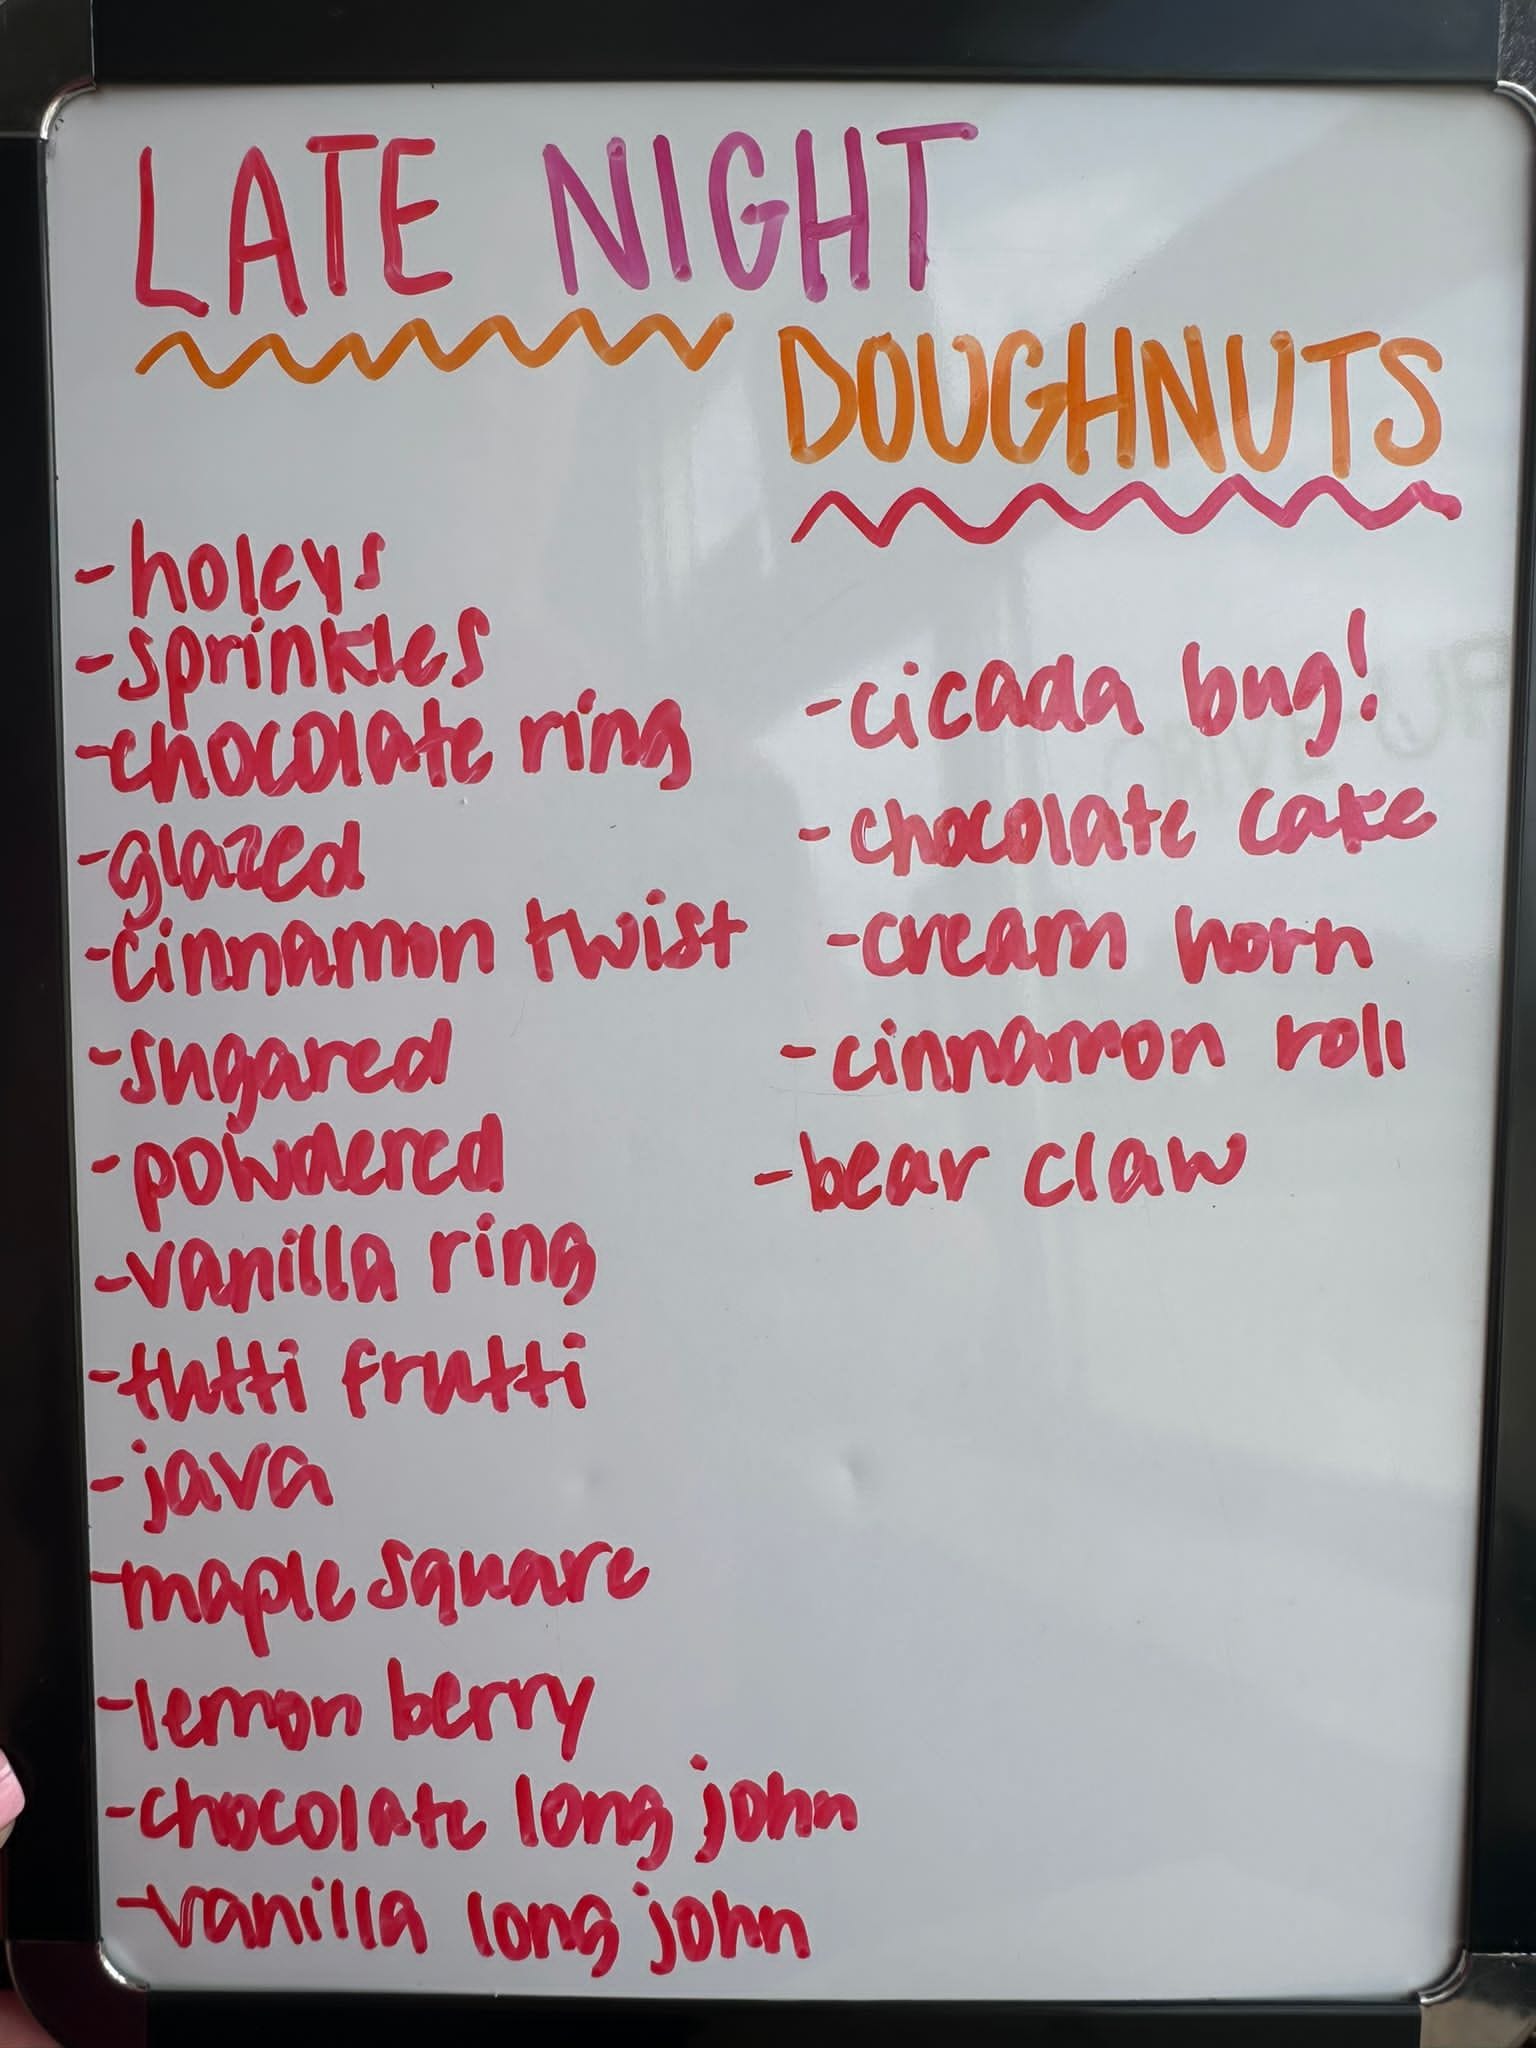 LATE NIGHT
DOUGHNUTS
-holeys
-sprinkles
-chocolate ring
-glazed
-cinnamon twist
-sugared
-powdered
-vanilla ring
-tutti frutti
-java
-maple square
-lemon berry
-chocolate long john
-vanilla long john
-cicada bug!
-chocolate cake
-cream horn
-cinnamon roll
-bear claw